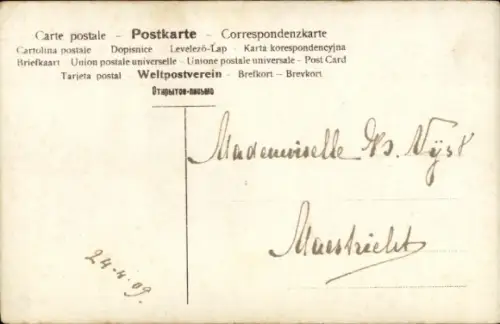 Carte postale – Postkarte – Correspondenzkarte
Cartolina postale – Dopisnice – Levelező-Lap – Karta korespondencyjna
Briefkaart – Union postale universelle – Unione postale universale – Post Card
Tarjeta postal – Weltpostverein – Brefkort – Brevkort
Открытое-письмо
Mademoiselle
Maestricht
24-4-09.